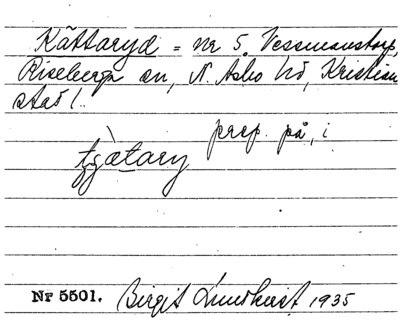 Kättaryd = nr 5 Vessmanstorp,
Riseberga sn, N. Åsbo hd, Kristian
stads l.
prep. på, i
Nr 5501. Birgit Lundkvist 1935